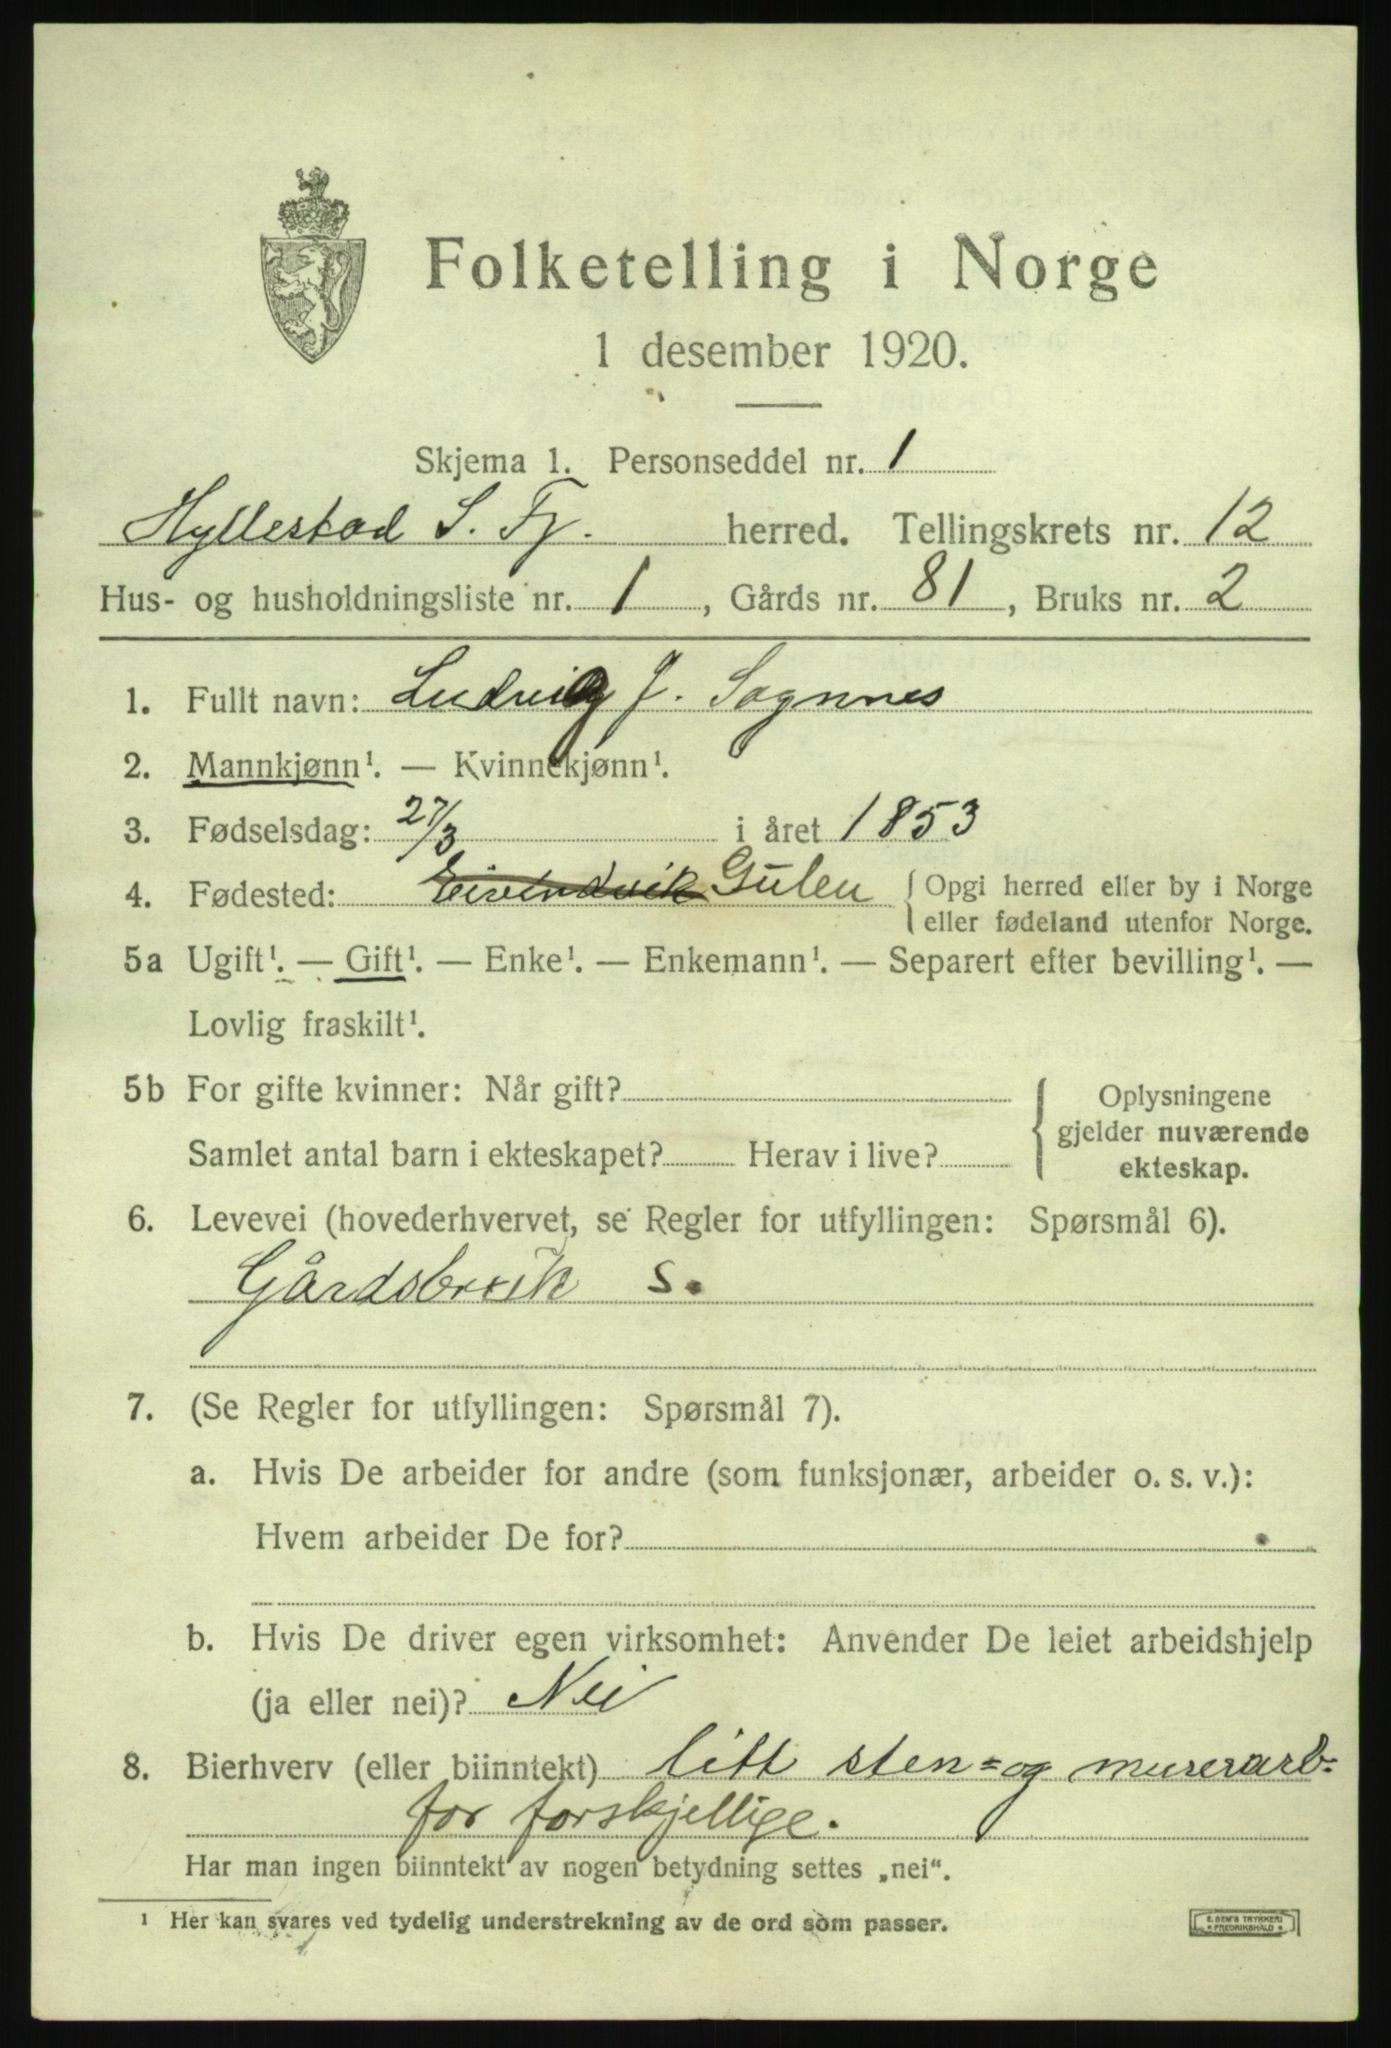 Folketelling i Norge
1 desember 1920.
Skjema 1. Personseddel nr. 1
Hyllestad S. Fj. herred. Tellingskrets nr. 12
Hus- og husholdningsliste nr. 1, Gårds nr. 81, Bruks nr. 2
1. Fullt navn: Ludvig J. Sognnes
2. Mannkjønn¹. — Kvinnekjønn¹.
3. Fødselsdag: 27/3 i året 1853
4. Fødested: Eivindvik Gulen { Opgi herred eller by i Norge
eller fødeland utenfor Norge.
5a Ugift¹. — Gift¹. — Enke¹. — Enkemann¹. — Separert efter bevilling¹. —
Lovlig fraskilt¹.
5b For gifte kvinner: Når gift?
Samlet antal barn i ekteskapet? Herav i live?
Oplysningene
gjelder nuværende
ekteskap.
6. Levevei (hovederhvervet, se Regler for utfyllingen: Spørsmål 6).
Gårdsbruk S.
7. (Se Regler for utfyllingen: Spørsmål 7).
a. Hvis De arbeider for andre (som funksjonær, arbeider o. s. v.):
Hvem arbeider De for?
b. Hvis De driver egen virksomhet: Anvender De leiet arbeidshjelp
(ja eller nei)? Nei
8. Bierhverv (eller biinntekt) litt sten- og murerarb-
for forskjellige.
Har man ingen biinntekt av nogen betydning settes „nei“.
¹ Her kan svares ved tydelig understrekning av de ord som passer.
E. SEM'S TRYKKERI
FREDRIKSHALD